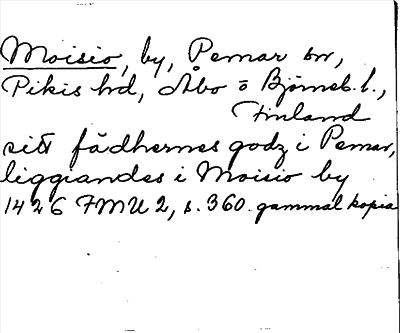 Moisio, by, Pemar sn,
Pikis hd, Åbo o Björneb. l.,
Finland
sitt fädhernes godz i Pemar,
liggiandes i Moisio by
1426 FMU 2, s. 360. gammal kopia